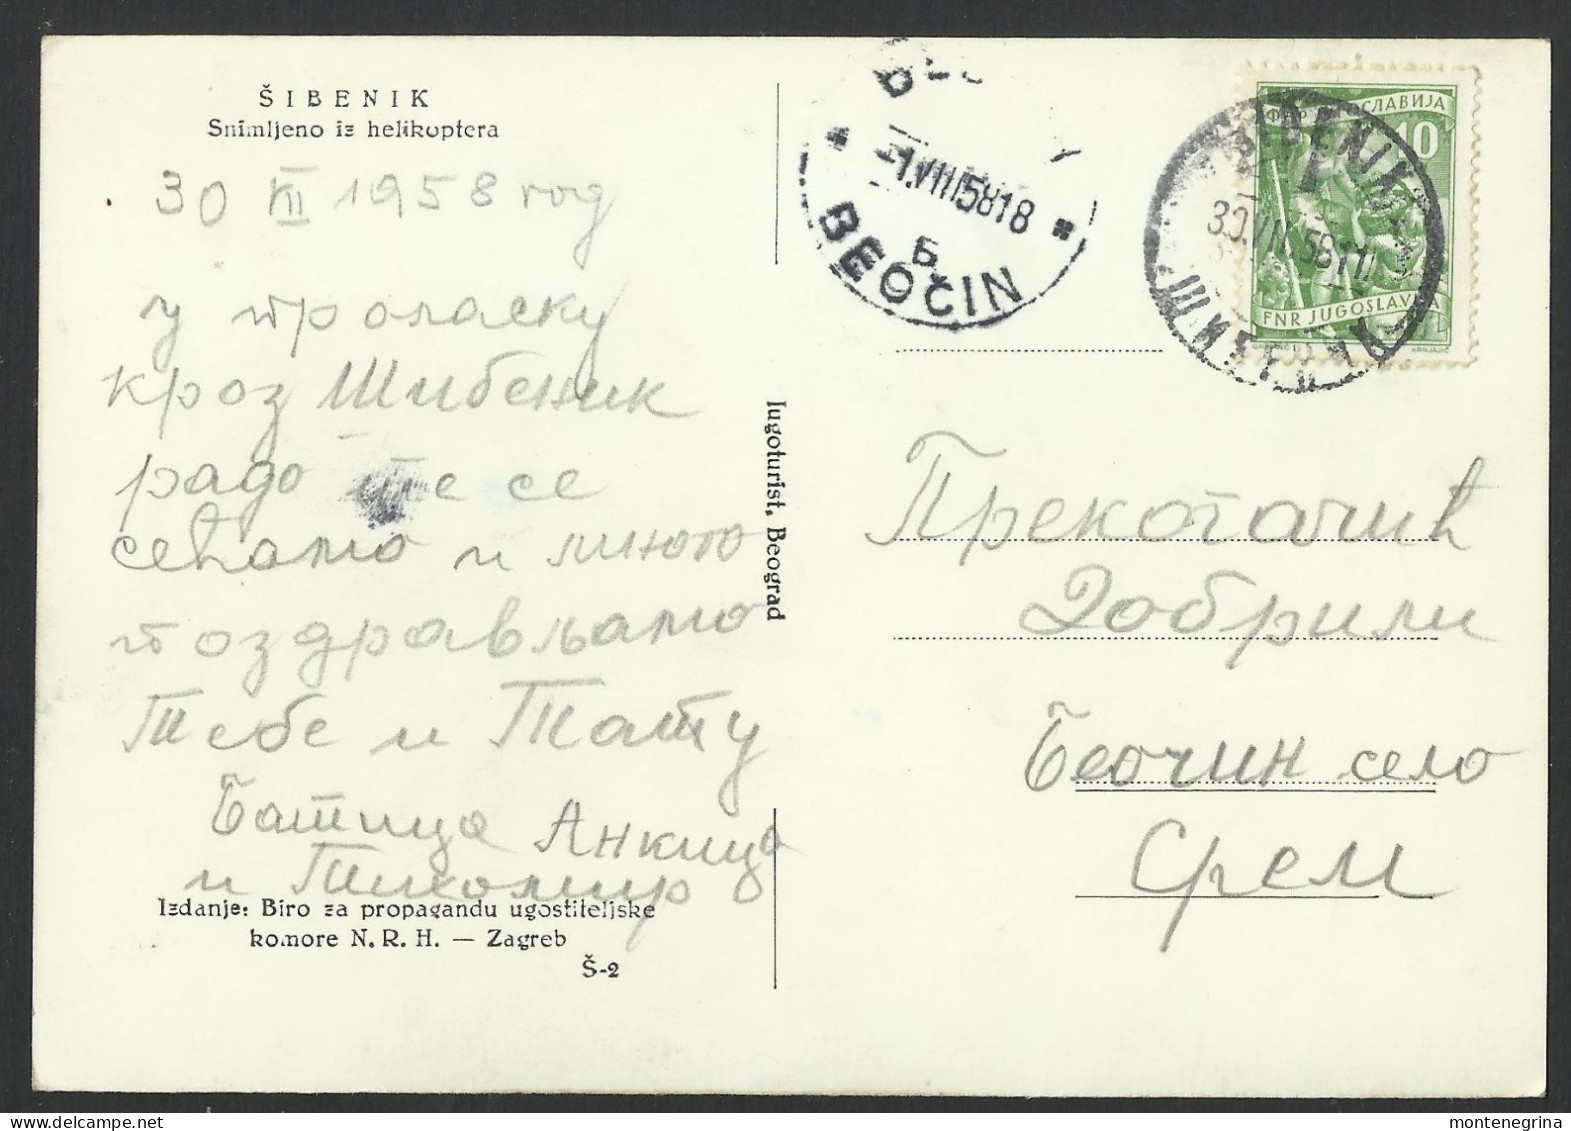 ŠIBENIK
Snimljeno iz helikoptera
30 VII 1958 год
у проласку
кроз Шибеник
радо те се
сећамо и много
поздрављамо
Тебе и Тату
Батица Анкица
и Тихомир
Izdanje: Biro za propagandu ugostiteljske
komore N. R. H. — Zagreb
Š-2
Jugoturist, Beograd
-1.VIII 58 18
Б
BEOČIN
ŠIBENIK
30.VII.58
ШИБЕНИК
СЛАВИЈА
10
FNR JUGOSLAVIJA
KRNJAJIĆ
Прекогачић
Добрили
Беочин село
Срем
montenegrina